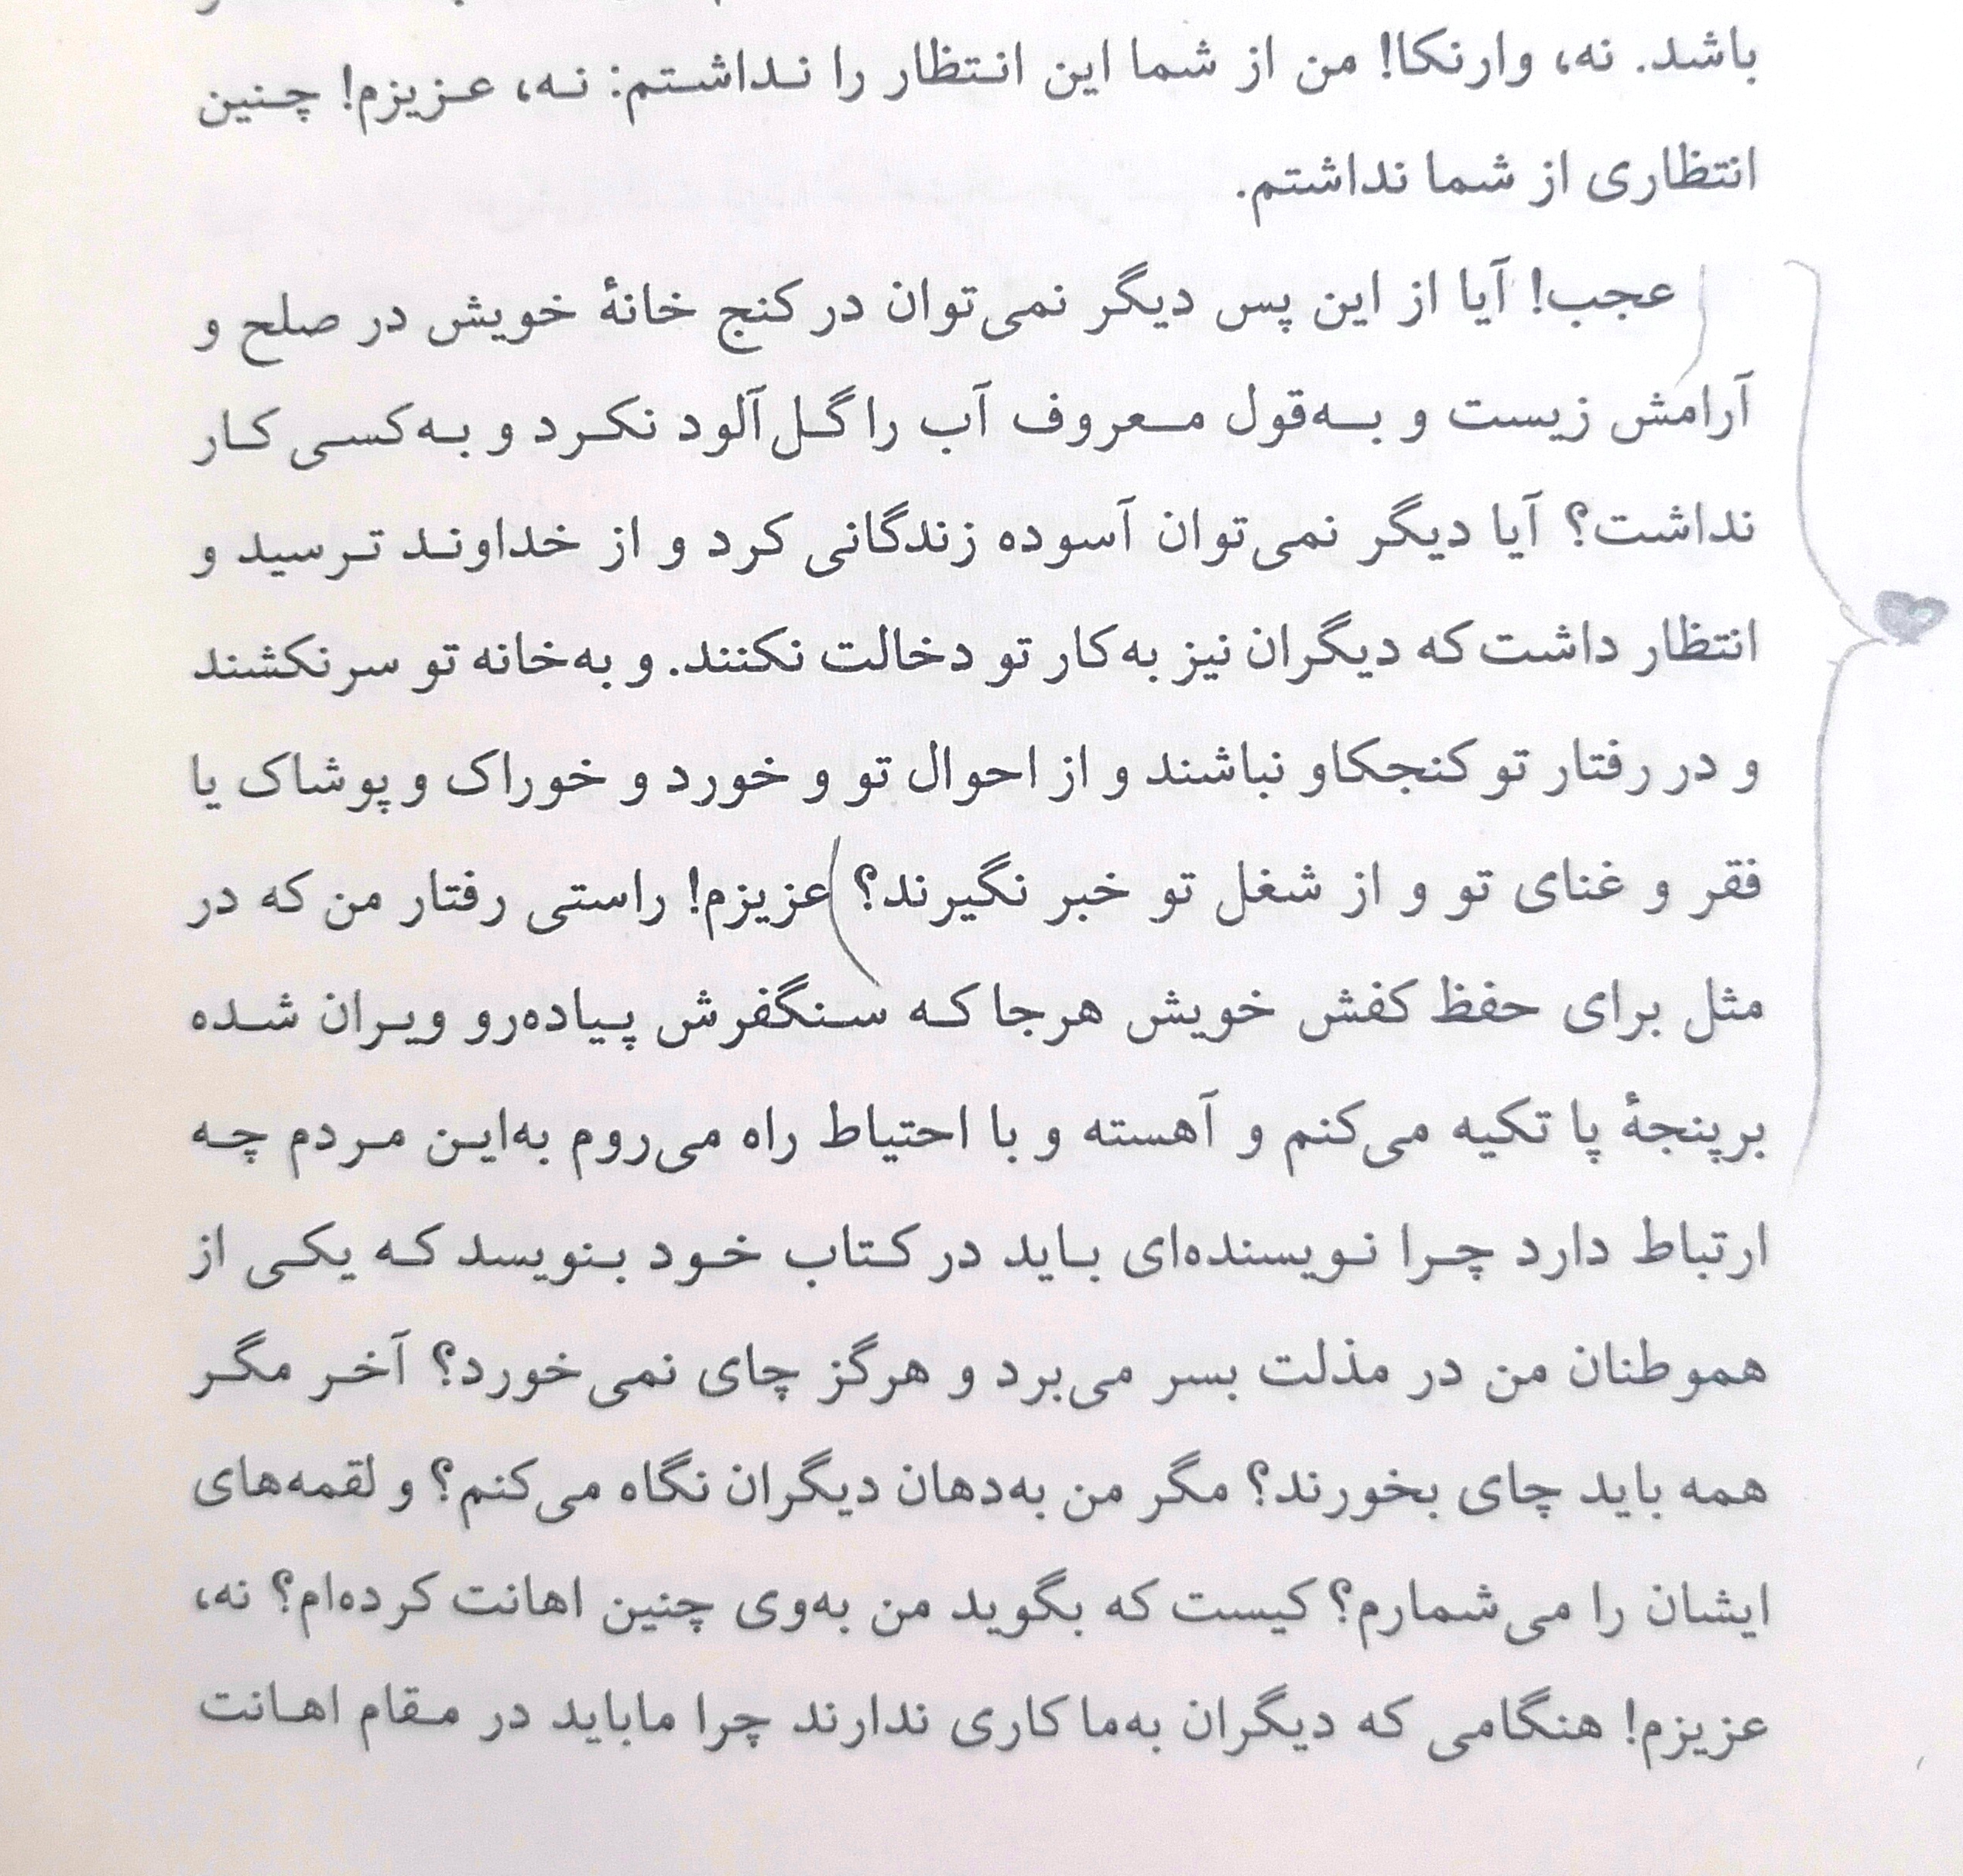 باشد. نه، وارنکا! من از شما این انتظار را نداشتم: نه، عزیزم! چنین
انتظاری از شما نداشتم.
عجب! آیا از این پس دیگر نمی‌توان در کنج خانهٔ خویش در صلح و
آرامش زیست و به‌قول معروف آب را گل‌آلود نکرد و به‌کسی کار
نداشت؟ آیا دیگر نمی‌توان آسوده زندگانی کرد و از خداوند ترسید و
انتظار داشت که دیگران نیز به‌کار تو دخالت نکنند. و به‌خانه تو سر نکشند
و در رفتار تو کنجکاو نباشند و از احوال تو و خورد و خوراک و پوشاک یا
فقر و غنای تو و از شغل تو خبر نگیرند؟ عزیزم! راستی رفتار من که در
مثل برای حفظ کفش خویش هرجا که سنگفرش پیاده‌رو ویران شده
برپنجهٔ پا تکیه می‌کنم و آهسته و با احتیاط راه می‌روم به‌این مردم چه
ارتباط دارد چرا نویسنده‌ای باید در کتاب خود بنویسد که یکی از
هموطنان من در مذلت بسر می‌برد و هرگز چای نمی‌خورد؟ آخر مگر
همه باید چای بخورند؟ مگر من به‌دهان دیگران نگاه می‌کنم؟ و لقمه‌های
ایشان را می‌شمارم؟ کیست که بگوید من به‌وی چنین اهانت کرده‌ام؟ نه،
عزیزم! هنگامی که دیگران به‌ما کاری ندارند چرا ماباید در مقام اهانت